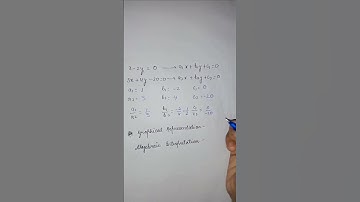 x - 2y = 0 → a₁x + b₁y + c₁ = 0
3x + 4y - 20 = 0 → a₂x + b₂y + c₂ = 0
a₁ = 1 b₁ = -2 c₁ = 0
a₂ = 3 b₂ = 4 c₂ = -20
a₁/a₂ = 1/3 b₁/b₂ = -2/4 = -1/2 c₁/c₂ = 0/-20
Graphical Representation -
Algebraic Interpretation -